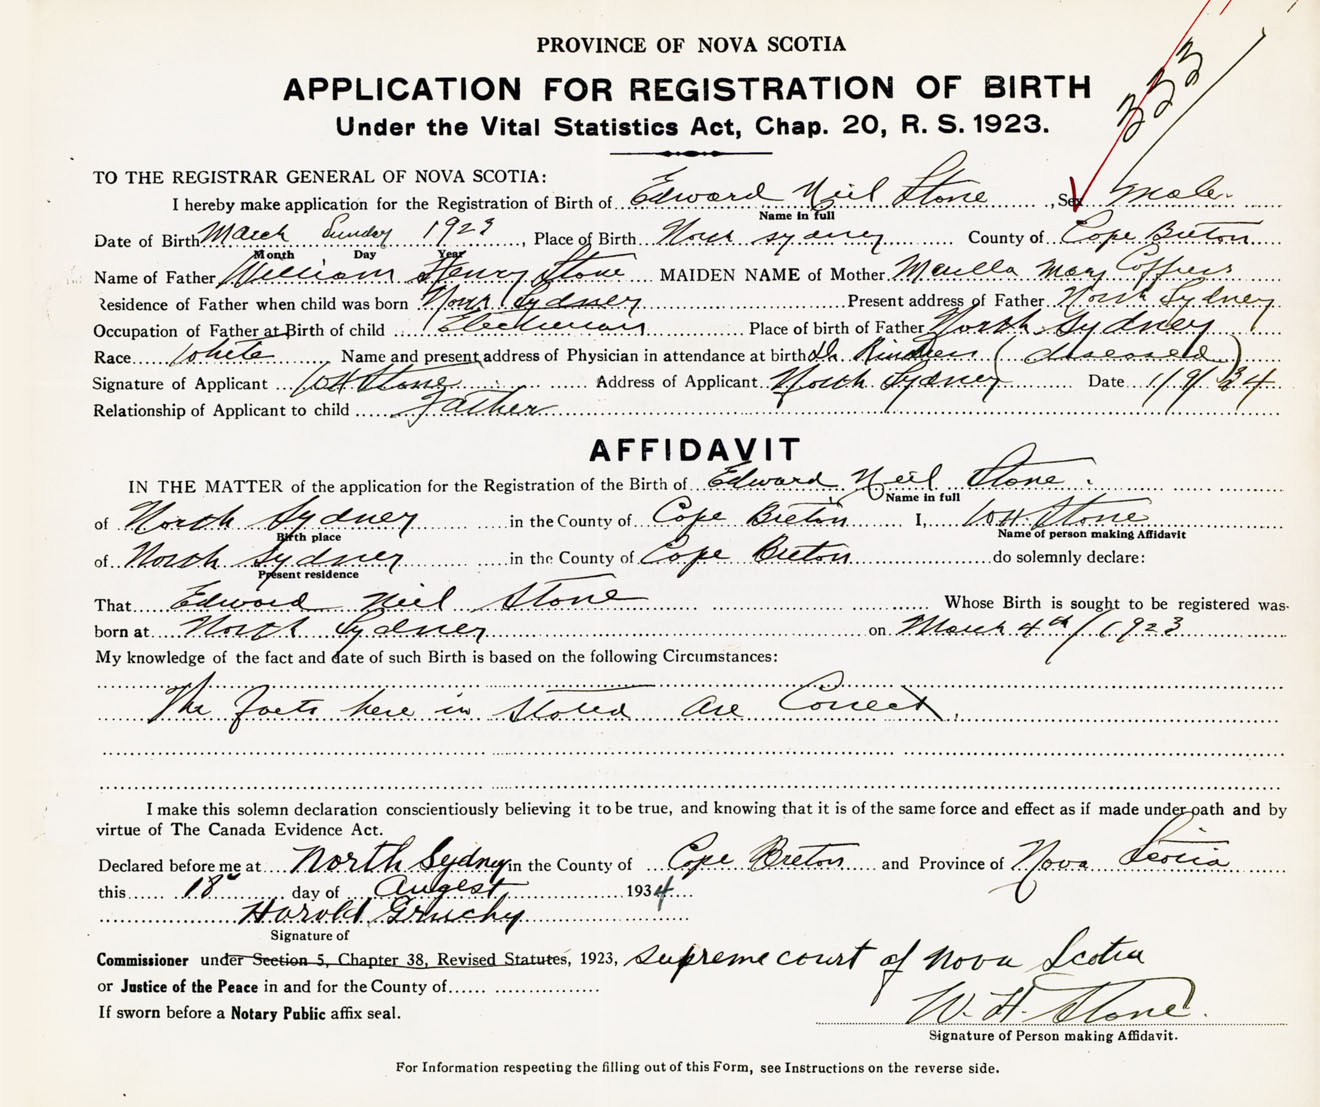 PROVINCE OF NOVA SCOTIA
APPLICATION FOR REGISTRATION OF BIRTH
333
Under the Vital Statistics Act, Chap. 20, R. S. 1923.
TO THE REGISTRAR GENERAL OF NOVA SCOTIA:
I hereby make application for the Registration of Birth of Edward Neil Stone, Sex Male.
Name in full
Date of Birth March Sunday 1923, Place of Birth North Sydney County of Cape Breton
Month Day Year
Name of Father William Henry Stone MAIDEN NAME of Mother May
Residence of Father when child was born North Sydney Present address of Father North Sydney
Occupation of Father at Birth of child Electrician Place of birth of Father North Sydney
Race White Name and present address of Physician in attendance at birth Dr. (diseased)
Signature of Applicant WH Stone Address of Applicant North Sydney Date 1/9/34
Relationship of Applicant to child Father
AFFIDAVIT
IN THE MATTER of the application for the Registration of the Birth of Edward Neil Stone.
Name in full
of North Sydney in the County of Cape Breton I, W.H. Stone
Birth place Name of person making Affidavit
of North Sydney in the County of Cape Breton do solemnly declare:
Present residence
That Edward Neil Stone Whose Birth is sought to be registered was
born at North Sydney on March 4th/1923
My knowledge of the fact and date of such Birth is based on the following Circumstances:
The facts here in stated are Correct.
I make this solemn declaration conscientiously believing it to be true, and knowing that it is of the same force and effect as if made under oath and by
virtue of The Canada Evidence Act.
Declared before me at North Sydney in the County of Cape Breton and Province of Nova Scotia
this 18 day of Augest 1934
Harold Gruchy
Signature of
Commissioner under Section 5, Chapter 38, Revised Statutes, 1923, supreme court of Nova Scotia
or Justice of the Peace in and for the County of
W. H. Stone.
If sworn before a Notary Public affix seal.
Signature of Person making Affidavit.
For Information respecting the filling out of this Form, see Instructions on the reverse side.